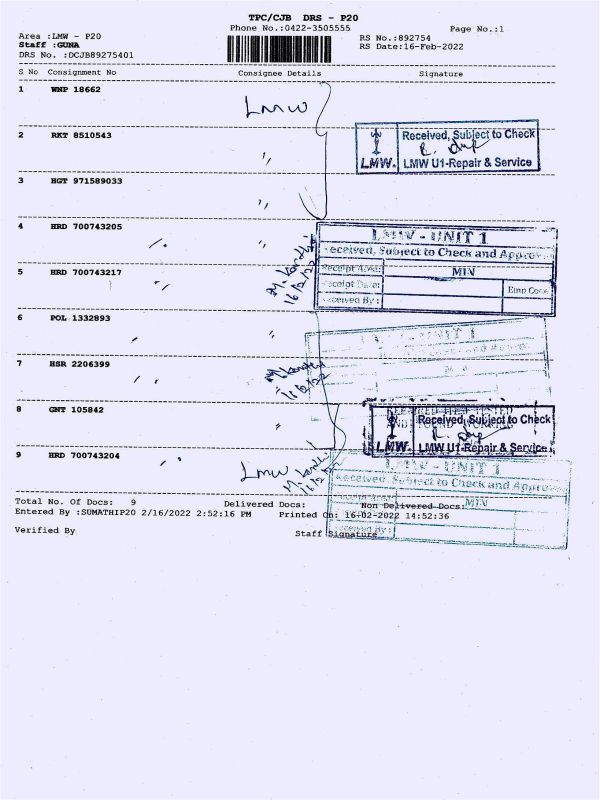 TPC/CJB DRS - P20
Phone No.:0422-3505555
Page No.:1
Area :LMW - P20
RS No.:892754
Staff :GUNA
RS Date:16-Feb-2022
DRS No. :DCJB89275401
S No Consignment No Consignee Details Signature
1 WNP 18662
LMW
2 RKT 8510543
Received, Subject to Check
LMW. LMW U1-Repair & Service
3 HGT 971589033
4 HRD 700743205
LMW - UNIT 1
Received, Subject to Check and Approv
Receipt Area: MIN
5 HRD 700743217
16/2/22
Receipt Date: Emp Code
Received By :
6 POL 1332893
UNIT 1
7 HSR 2206399
16/2/22
8 GNT 105842
Received, Subject to Check
LMW. LMW U1-Repair & Service
9 HRD 700743204
LMW
LMW - UNIT 1
Received, Subject to Check and Approv
MIN
Total No. Of Docs: 9 Delivered Docs: Non Delivered Docs:
Entered By :SUMATHIP20 2/16/2022 2:52:16 PM Printed On: 16-02-2022 14:52:36
Received By :
Verified By Staff Signature